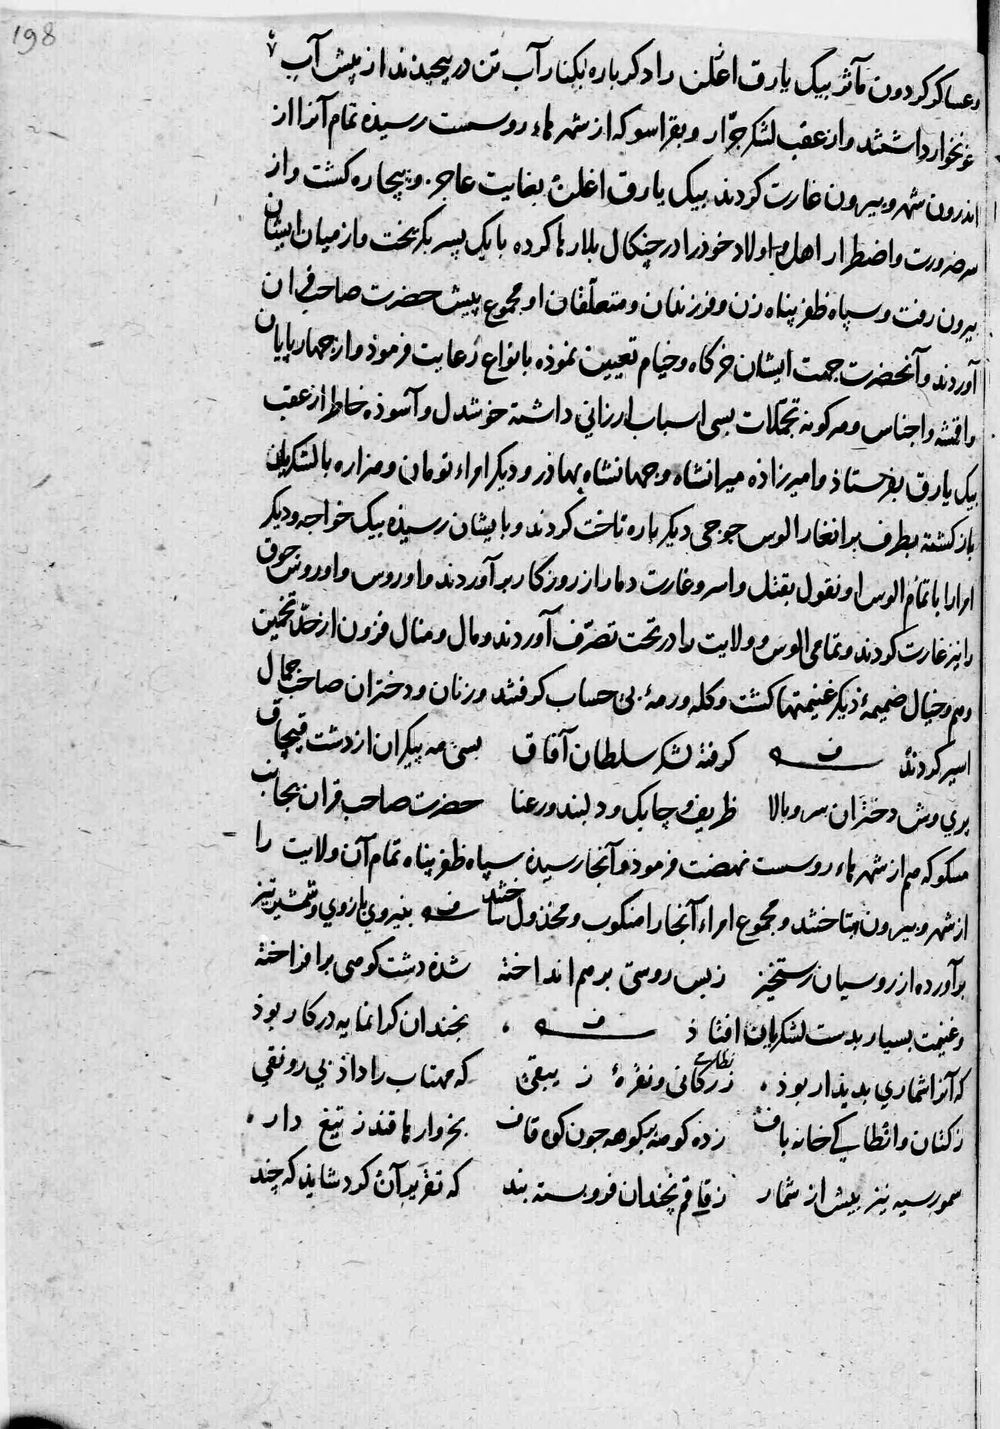 198
و عساکر کردون مآثر بیک یارق اغلن را دکر باره بکنار آب تن در پیچیدند از پیش آب
خونخوار داشتند و از عقب لشکر جرّار و بقراسو که از شهرهاء روسست رسیذه تمام آنرا از
اندرون شهر و بیرون غارت کردند بیک یارق اغلن بغایت عاجز و بیچاره کشت و از
سر ضرورت و اضطرار اهل و اولاد خود را در چنکال بلا رها کرده با یک پسر بکریخت و از میان ایشان
بیرون رفت و سپاه ظفر پناه زن و فرزندان و متعلّقان او مجموع پیش حضرت صاحب قران
آوردند و آنحضرت جهت ایشان خرکاه و خیام تعیین نموذه بانواع رعایت فرموذ و از جهار پایان
و اقمشه و اجناس و هر کونه تجمّلات بسی اسباب ارزانی داشته خوشدل و آسوذه خاطر از عقب
بیک یارق بفرستاذ و امیرزاذه میرانشاه و جهانشاه بهاذر و دیکر امراء تومان و هزاره با لشکریان
باز کشته بطرف برانغار الوس جوجی دیکر باره تاخت کردند و بایشان رسیذه بیک خواجه و دیکر
امرا را با تمام الوس اونقول بقتل و اسر و غارت دمار از روزکار برآوردند و اوروس و اوروس جوق
را نیز غارت کردند و تمامی الوس و ولایت را در تحت تصرّف آوردند و مال و منال فزون از حدّ تخمین
وهم و خیال ضمیمهٔ دیکر غنیمتها کشت و کله و رمهٔ بی حساب کرفتند و زنان و دختران صاحب جمال
اسیر کردند کرفته لشکر سلطان آفاق بسی مه پیکران از دشت قپچاق
پری وش دختران سرو بالا ظریف و چابک و دلبند و رعنا حضرت صاحب قران بجانب
مسکو که هم از شهرهاء روسست نهضت فرموذ و آنجا رسیده سپاه ظفر پناه تمام آن ولایت را
از شهر و بیرون بتاختند و مجموع امراء آنجا را منکوب و مخذول ساختند بنیروی بازوی و شمشیر تیز
برآورده از روسیان رستخیز ز بس روسی بر هم انداخته شذه دشت کوهی برافراخته
و غنیمت بسیار بدست لشکریان افتاذ بچندان کرانمایه در کار بوذ
که آنرا شماری بدیذار بوذ زر کانی و نقرهٔ زیبقی که مهتاب را داذ بی رونقی
ز کتان و انطاکی خانه باف زده کوهه بر کوهه جون کوه قاف بخروارها قندز تیغ دار
سمور سیه نیز بیش از شمار ز قاقم نچندان فروبسته بند که تقریر آن کرد شاید که چند